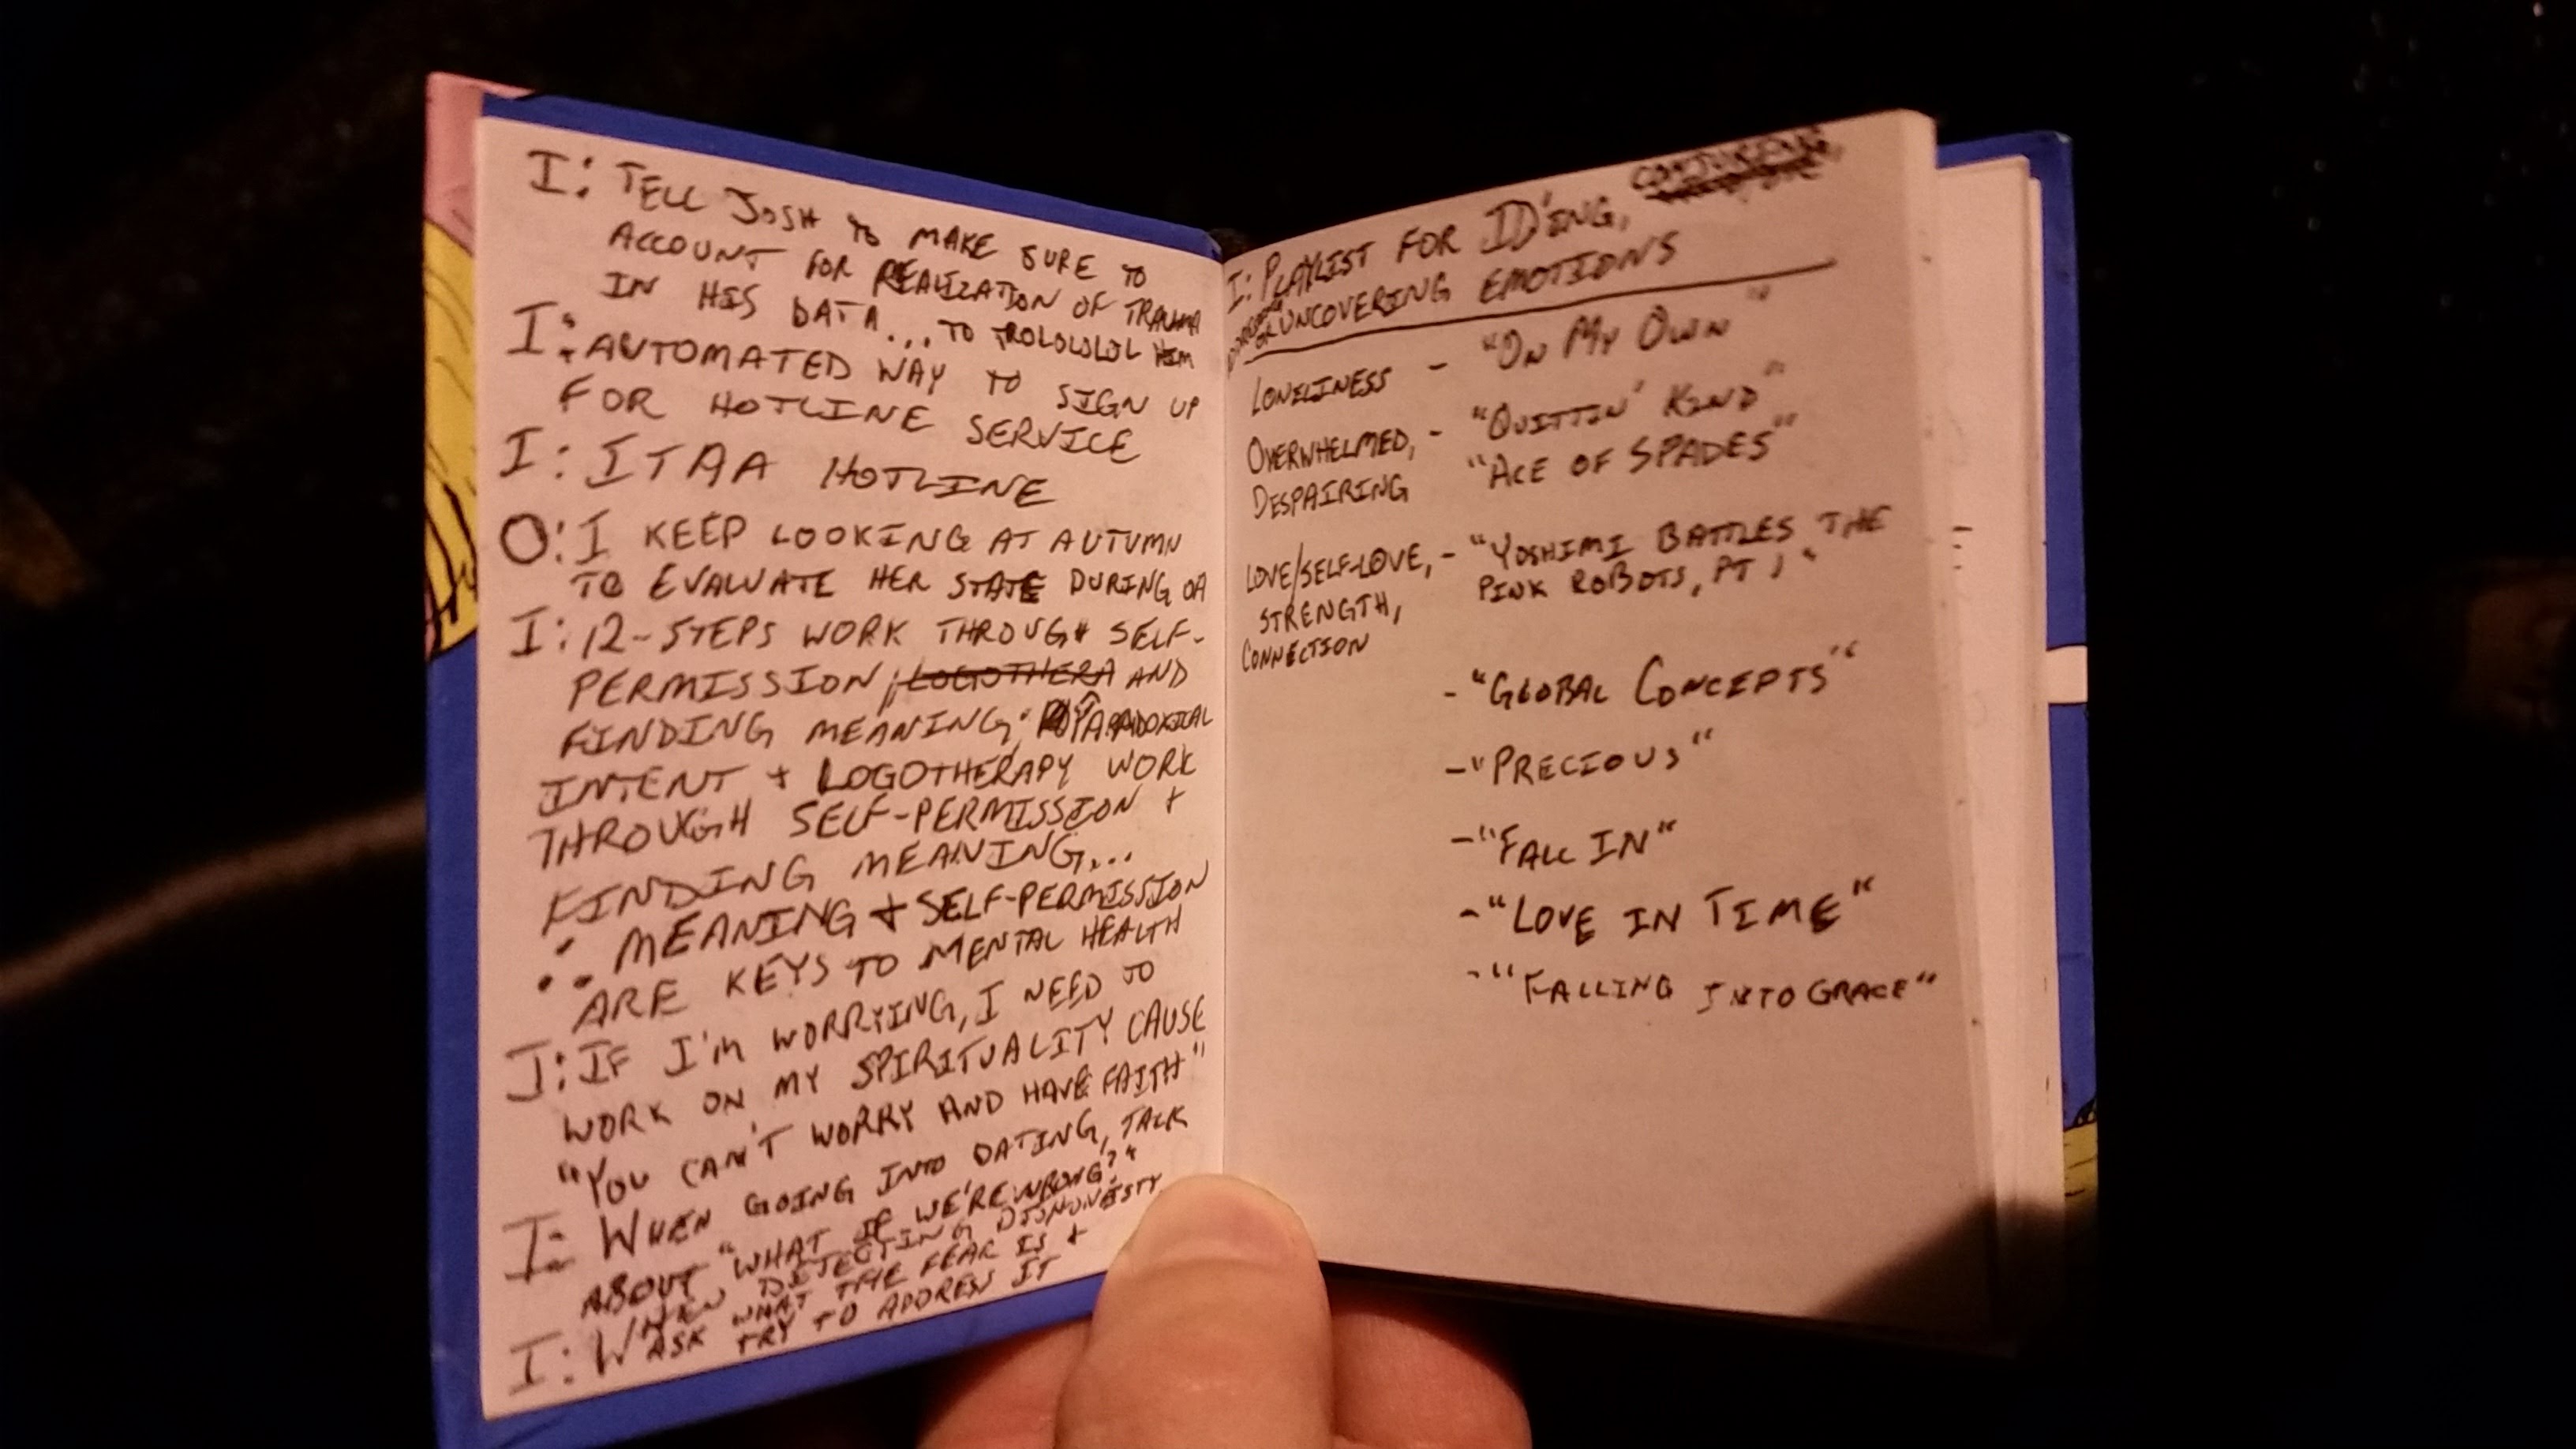 I: TELL JOSH TO MAKE SURE TO
ACCOUNT FOR REALIZATION OF TRAUMA
IN HIS DATA... TO TROLOLOLOL HIM
I: AUTOMATED WAY TO SIGN UP
FOR HOTLINE SERVICE
I: ITAA HOTLINE
O: I KEEP LOOKING AT AUTUMN
TO EVALUATE HER STATE DURING DA
I: 12-STEPS WORK THROUGH SELF-
PERMISSION, LOGOTHERA AND
FINDING MEANING, PARADOXICAL
INTENT + LOGOTHERAPY WORK
THROUGH SELF-PERMISSION +
FINDING MEANING...
∴ MEANING + SELF-PERMISSION
ARE KEYS TO MENTAL HEALTH
I: IF I'M WORRYING, I NEED TO
WORK ON MY SPIRITUALITY CAUSE
"YOU CAN'T WORRY AND HAVE FAITH"
I: WHEN GOING INTO DATING, TALK
ABOUT "WHAT IF WE'RE WRONG?"
I: WHEN DETECTING DISHONESTY
ASK WHAT THE FEAR IS +
TRY TO ADDRESS IT
I: PLAYLIST FOR ID'ING,
UNCOVERING EMOTIONS
LONELINESS - "ON MY OWN"
OVERWHELMED, - "QUITTIN' KIND"
DESPAIRING "ACE OF SPADES"
LOVE/SELF-LOVE, - "YOSHIMI BATTLES THE
STRENGTH, PINK ROBOTS, PT 1"
CONNECTION
- "GLOBAL CONCEPTS"
- "PRECIOUS"
- "FALL IN"
- "LOVE IN TIME"
- "FALLING INTO GRACE"